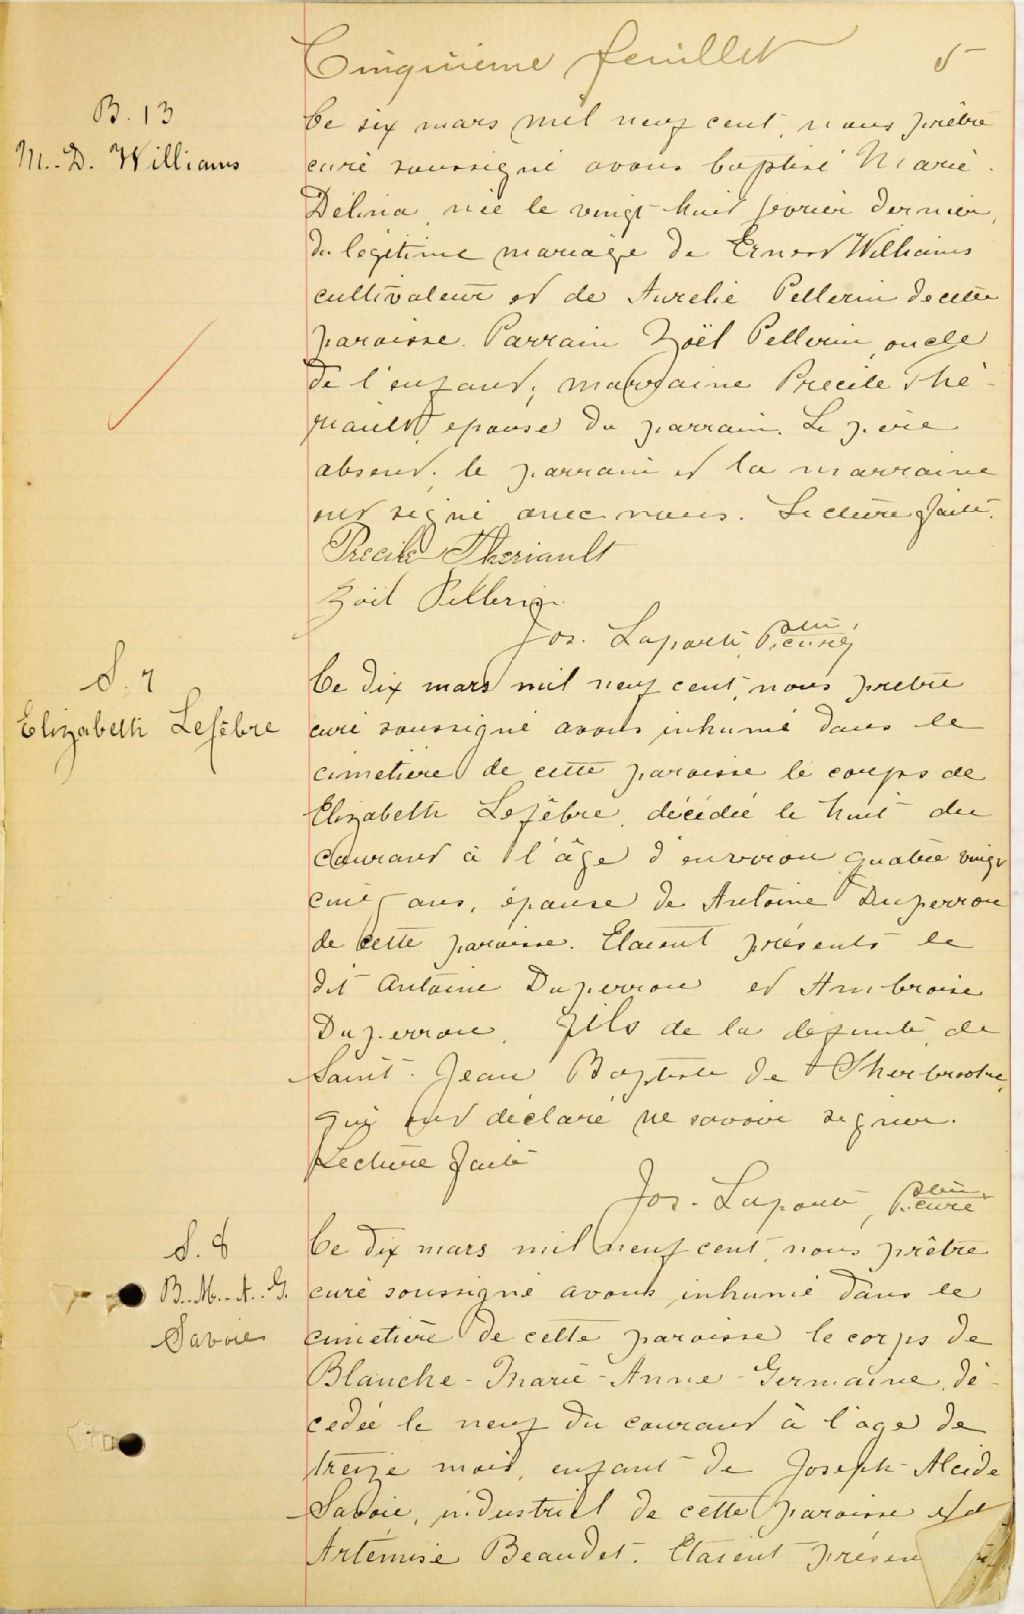 Cinquième feuillet 5
B. 13
M.-D. Williams
Ce six mars mil neuf cent, nous prêtre
curé soussigné avons baptisé Marie
Délina, née le vingt-huit février dernier,
du légitime mariage de Ernest Williams
cultivateur et de Aurelie Pellerin de cette
paroisse. Parrain Zoël Pellerin, oncle
de l'enfant; marraine Precile Thé-
riault, epouse du parrain. Le père
absent, le parrain et la marraine
ont signé avec nous. Lecture faite.
Precile Theriault
Zoël Pellerin
Jos. Laporte, Ptre, curé
S. 7
Elizabeth Lefêbre
Ce dix mars mil neuf cent, nous prêtre
curé soussigné avons inhumé dans le
cimetière de cette paroisse le corps de
Elizabeth Lefêbre, décédée le huit du
courant à l'âge d'environ quatre vingt
cinq ans, épouse de Antoine Duperron
de cette paroisse. Etaient présents le
dit Antoine Duperron et Ambroise
Duperron, fils de la défunte, de
Saint-Jean Baptiste de Sherbrooke,
qui ont déclaré ne savoir signer.
Lecture faite
Jos. Laporte, Ptre, curé
S. 8
B.-M.-A.-G.
Savoie
Ce dix mars mil neuf cent, nous prêtre
curé soussigné avons inhumé dans le
cimetière de cette paroisse le corps de
Blanche-Marie-Anne-Germaine, dé-
cedée le neuf du courant à l'age de
treize mois, enfant de Joseph-Alcide
Savoie, industriel de cette paroisse et d
Artémise Beaudet. Etaient présen